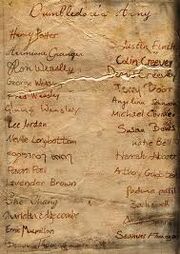 Dumbledore's Army
Harry Potter
Hermione Granger
Ron Weasley
George Weasley
Fred Weasley
Ginny Weasley
Lee Jordan
Neville Longbottom
Luna Lovegood
Lavender Brown
Cho Chang
Marietta Edgecombe
Ernie Macmillan
Justin Finch
Colin Creevey
Dennis Creevey
Terry Boot
Angelina Johnson
Michael Corner
Susan Bones
Katie Bell
Hannah Abbott
Anthony Goldstein
Padma Patil
Zacharias
Seamus Finnigan